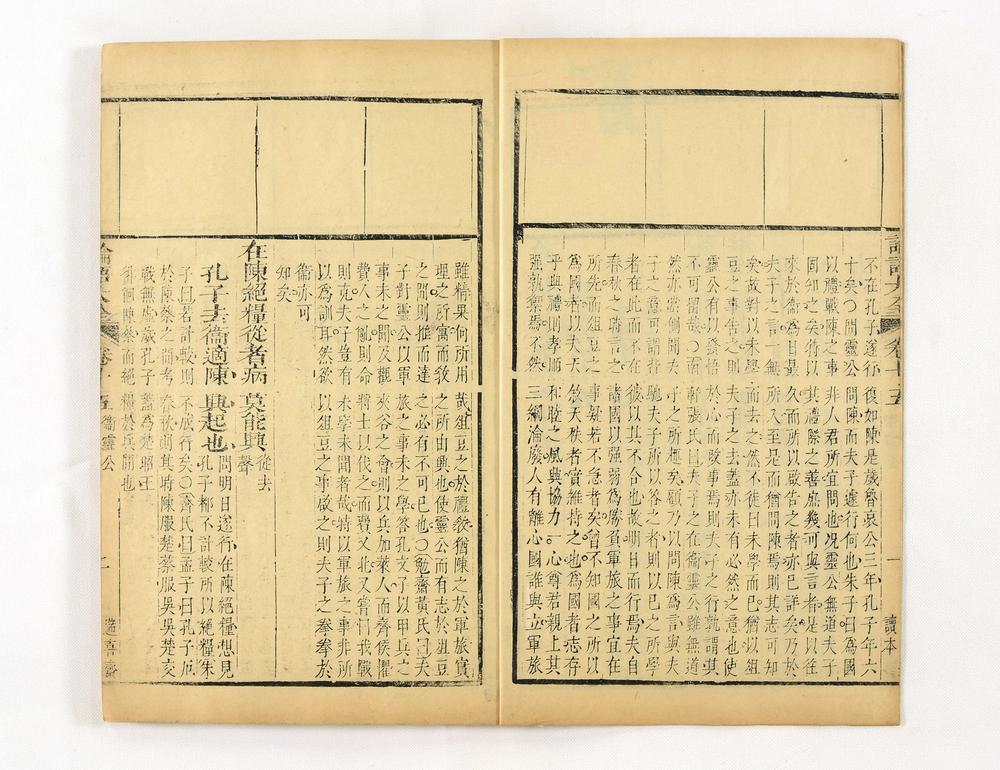 論語大全 卷十五 一 讀本
不在孔子遂行後如陳是歲魯哀公三年孔子年六
十矣〇問靈公問陳而夫子遽行何也朱子曰為國
以禮戰陳之事非人君所宜問也况靈公無道夫子
固知之矣特以其禮際之善庶幾可與言者是以往
來於衛為日最久而所以啟告之者亦已詳矣乃於
夫子之言一無所入至是而猶問陳焉則其志可知
矣故對以未學而去之然不徒曰未學而已猶以俎
豆之事告則夫子之去蓋亦未有必然之意也使
靈公有以發悟於心而改事焉則夫子之行孰謂其
不可留哉〇南軒張氏曰夫子之在衛靈公雖無道
然亦嘗側聞夫子之所趨矣顧乃以問陳為言與夫
子之意可謂背馳夫子所以答之者則以已之所學
者在此而不在彼以其不合也故明日而行焉夫自
春秋之時言之諸國以强弱為勝負軍旅之事宜在
所先而俎豆之事疑若不急者矣曾不知國之所以
為國者以夫天敘天秩者實維持之也為國者志存
乎典禮則孝順和睦之風興協力一心尊君親上其
强孰禦焉不然三綱淪廢人有離心國誰與立軍旅
雖精果何所用哉俎豆之於禮教猶陳之於軍旅實
理之所寓而教之所由興也使靈公而有志於俎豆
之間則推而達之必有不可已也〇勉齋黃氏曰夫
子對靈公以軍旅之事未之學答孔文子以甲兵之
事未之聞及觀夾谷之會則以兵加萊人而齊侯懼
費人之亂則命將士以伐之而費人北又嘗曰我戰
則克夫子豈有未學未聞者哉特以軍旅之事非所
以為訓耳然欲以俎豆之事啟之則夫子之拳拳於
衛亦可
知矣
在陳絕糧從者病莫能興從去聲
孔子去衛適陳興起也問明日遂行在陳絕糧想見
孔子都不計較所以絕糧朱
子曰若計較則不成行矣〇齊氏曰孟子曰孔子厄
於陳蔡之間考春秋前其時陳服楚蔡服吳吳楚交
戰無虛歲孔子蓋為楚昭王
徘徊陳蔡而絕糧於兵間也
論語大全 卷十五 衛靈公 二